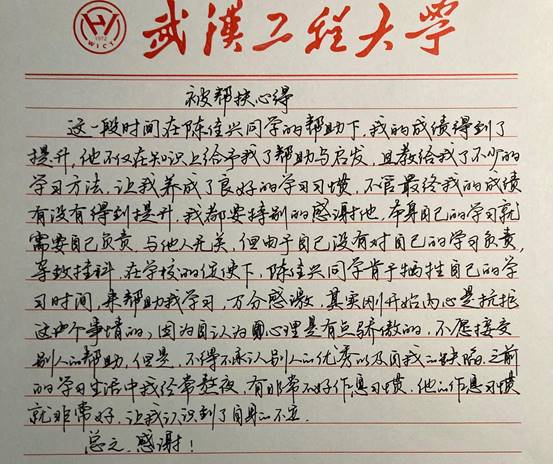 WICT
1972
武漢工程大学
被帮扶心得
这一段时间在陈佳兴同学的帮助下,我的成绩得到了
提升,他不仅在知识上给予我了帮助与启发,且教给我了不少的
学习方法,让我养成了良好的学习习惯,不管最终我的成绩
有没有得到提升,我都要特别的感谢他,本身自己的学习就
需要自己负责,与他人无关,但由于自己没有对自己的学习负责,
导致挂科,在学校的促使下,陈佳兴同学肯于牺牲自己的学
习时间,来帮助我学习,万分感激,其实刚开始内心是抗拒
这个事情的,因为自认为心理是有点骄傲的,不愿接受
别人的帮助,但是,不得不承认别人的优秀以及自我的缺陷,之前
的学习生活中我经常熬夜,有非常不好作息习惯,他的作息习惯
就非常好,让我认识到了自身的不足.
总之,感谢!